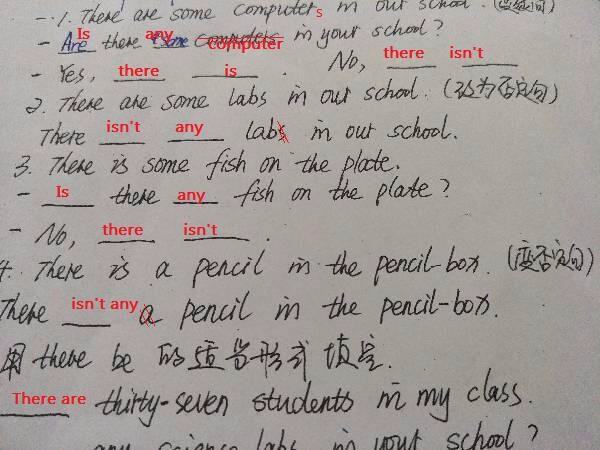 1. There are some computers in our school. (变疑问)
- Are Is there some any computers computer in your school?
- Yes, there is. No, there isn't
2. There are some labs in our school. (改为否定句)
There isn't any labs in our school.
3. There is some fish on the plate.
- Is there any fish on the plate?
- No, there isn't.
4. There is a pencil in the pencil-box. (变否定句)
There isn't any a pencil in the pencil-box.
用 there be 的适当形式填空.
There are thirty-seven students in my class.
any science labs in your school?